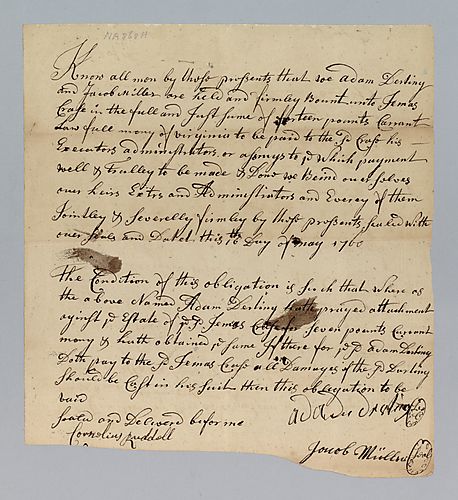 NA 868H
Know all men by thos presents that we Adam Derting
and Jacob Miller are held and firmley Bount unto Jemas
Cras in the full and Just sume of forteen pounts Currant
Law full mony of virginia to be paid to the sd Cras his
Executors administrators or asigns to sd which payment
well & trulley to be made & Done we Beind over selves
over heirs Extrs and Administrators and Everey of them
Jointley & severelly firmley by thos presents sealed with
over seals and Dated this Day of may 1760
the Condition of this obligation is such that where as
the above Named Adam Derting hath prayed attachment
against sd Estate of sd Jemas Cras for seven pounts Currant
mony & hath obtained sd same if there for sd adam Derting
Doth pay to the sd Jemas Cras all Damages if the sd Durting
should be Cast in his suit then this obligation to be
void
seald and Delivered before me
Cornelius Ruddell
adam
Jacob Müller
Seal